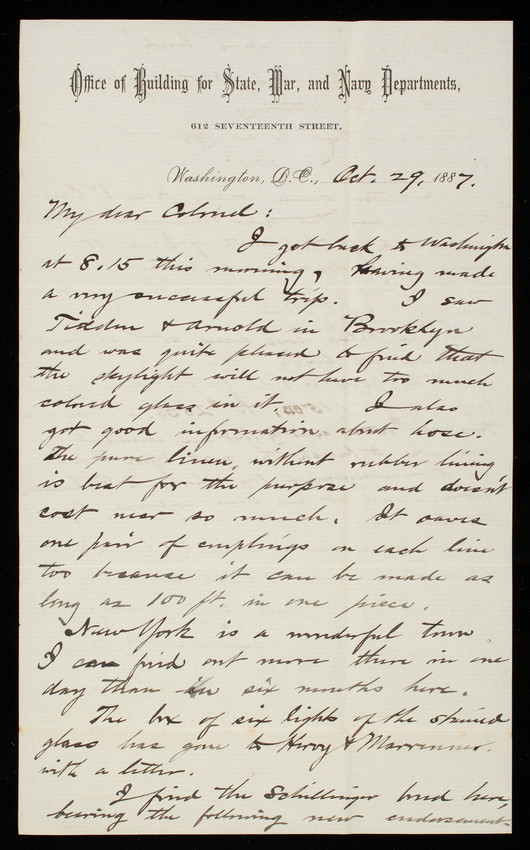 Office of Building for State, War, and Navy Departments,
612 SEVENTEENTH STREET,
Washington, D.C., Oct. 29, 1887.
My dear Colonel:
I got back to Washington
at 8.15 this morning, having made
a very successful trip. I saw
Tidden & Arnold in Brooklyn
and was quite pleased to find that
the skylight will not have too much
colored glass in it. I also
got good information about hose.
The pure linen, without rubber lining
is best for the purpose and doesn't
cost near so much. It saves
one pair of couplings on each line
too because it can be made as
long as 100 ft. in one piece.
New York is a wonderful town
I can find out more there in one
day than in six months here.
The box of six lights of the stained
glass has gone to &
with a letter.
I find the Schillinger bond here,
bearing the following new endorsement